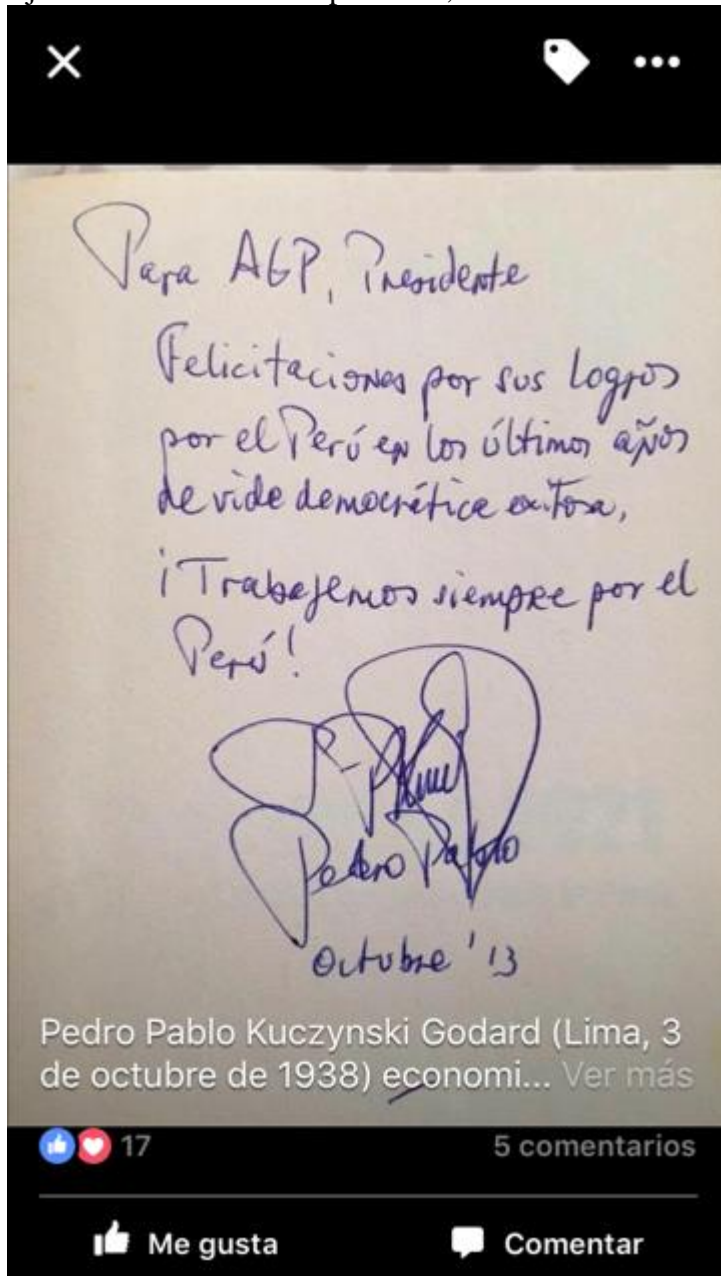 Para AGP, Presidente
Felicitaciones por sus logros
por el Perú en los últimos años
de vida democrática exitosa,
¡Trabajemos siempre por el
Perú!
Pedro Pablo
Octubre '13
Pedro Pablo Kuczynski Godard (Lima, 3
de octubre de 1938) economi... Ver más
17
5 comentarios
Me gusta
Comentar